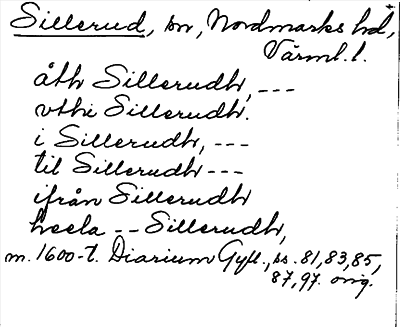 Sillerud, sn, Nordmarks hd,
Värml. l.
åth Sillerudh, ---
vthi Sillerudh.
i Sillerudh, ---
til Sillerudh ---
ifrån Sillerudh
heela -- Sillerudh,
m. 1600-t. Diarium Gyll., ss. 81, 83, 85,
87, 97. orig.